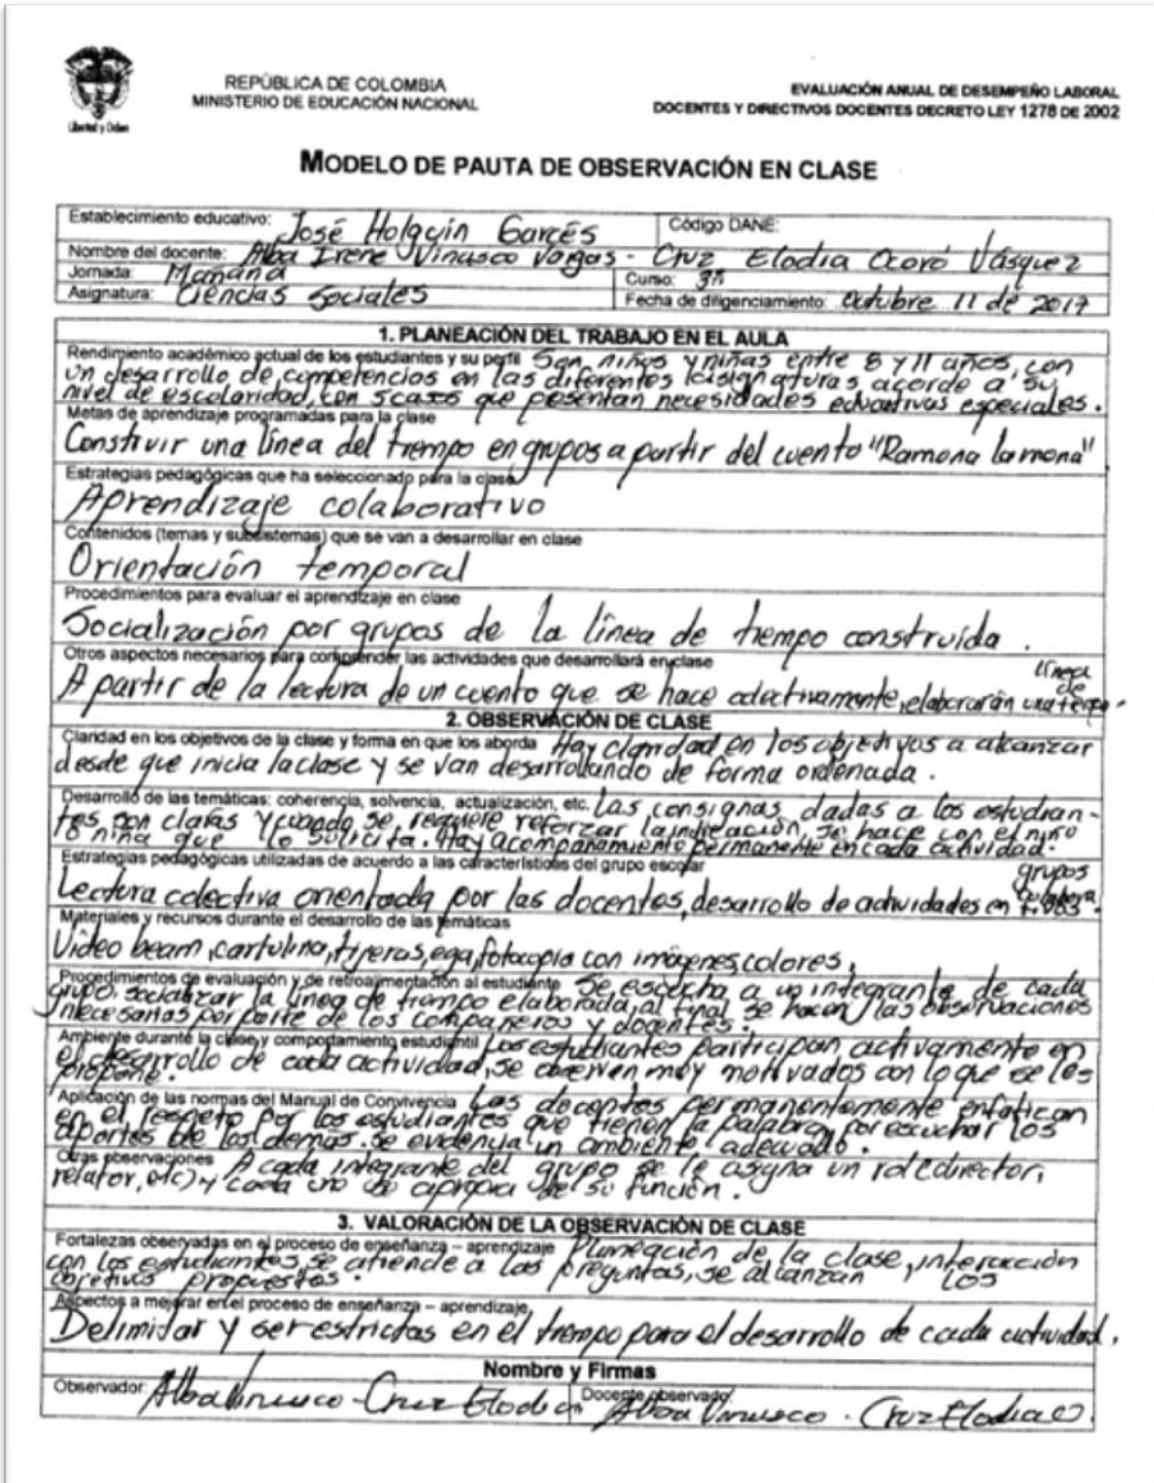 REPÚBLICA DE COLOMBIA
MINISTERIO DE EDUCACIÓN NACIONAL
Libertad y Orden
EVALUACIÓN ANUAL DE DESEMPEÑO LABORAL
DOCENTES Y DIRECTIVOS DOCENTES DECRETO LEY 1278 DE 2002
MODELO DE PAUTA DE OBSERVACIÓN EN CLASE
Establecimiento educativo: José Holguín Garcés
Código DANE:
Nombre del docente: Alba Irene Vinasco Vargas - Cruz Elodia Ocoró Vásquez
Jornada: Mañana
Curso:
Asignatura: Ciencias Sociales
Fecha de diligenciamiento: Octubre 11 de 2017
1. PLANEACIÓN DEL TRABAJO EN EL AULA
Rendimiento académico actual de los estudiantes y su perfil Son niños y niñas entre 8 y 11 años, con
un desarrollo de competencias en las diferentes asignaturas acorde a su
nivel de escolaridad, con 5 casos que pesentan necesidades educativas especiales.
Metas de aprendizaje programadas para la clase
Construir una línea del tiempo en grupos a partir del cuento "Ramona la mona"
Estrategias pedagógicas que ha seleccionado para la clase
Aprendizaje colaborativo
Contenidos (temas y subsistemas) que se van a desarrollar en clase
Orientación temporal
Procedimientos para evaluar el aprendizaje en clase
Socialización por grupos de la línea de tiempo construída.
Otros aspectos necesarios para comprender las actividades que desarrollará en clase
A partir de la lectura de un cuento que se hace colectivamente, elaborarán una línea de tiempo.
2. OBSERVACIÓN DE CLASE
Claridad en los objetivos de la clase y forma en que los aborda Hay claridad en los objetivos a alcanzar
desde que inicia la clase y se van desarrollando de forma ordenada.
Desarrollo de las temáticas: coherencia, solvencia, actualización, etc. Las consignas dadas a los estudian-
tes son claras y cuando se requiere reforzar la indicación, se hace con el niño
o niña que lo solicita. Hay acompañamiento permanente en cada actividad.
Estrategias pedagógicas utilizadas de acuerdo a las características del grupo escolar
Lectura colectiva orientada por las docentes, desarrollo de actividades en grupos colaborativos.
Materiales y recursos durante el desarrollo de las temáticas
Video beam, cartulina, tijeras, ega, fotocopia con imágenes, colores.
Procedimientos de evaluación y de retroalimentación al estudiante Se escucha a un integrante de cada
grupo, socializar la línea de tiempo elaborada, al final se hacen las observaciones
necesarias por parte de los compañeros y docentes.
Ambiente durante la clase y comportamiento estudiantil Los estudiantes participan activamente en
el desarrollo de cada actividad, se observan muy motivados con lo que se les
propone.
Aplicación de las normas del Manual de Convivencia Las docentes permanentemente enfatizan
en el respeto por los estudiantes que tienen la palabra, por escuchar los
aportes de los demás. Se evidencia un ambiente adecuado.
Otras observaciones A cada integrante del grupo se le asigna un rol (director,
relator, etc) y cada uno se apropia de su función.
3. VALORACIÓN DE LA OBSERVACIÓN DE CLASE
Fortalezas observadas en el proceso de enseñanza – aprendizaje Planeación de la clase, interacción
con los estudiantes, se atiende a las preguntas, se alcanzan los
objetivos propuestos.
Aspectos a mejorar en el proceso de enseñanza – aprendizaje
Delimitar y ser estrictas en el tiempo para el desarrollo de cada actividad.
Nombre y Firmas
Observador: Alba Vinasco - Cruz Elodia
Docente observado: Alba Vinasco - Cruz Elodia O.